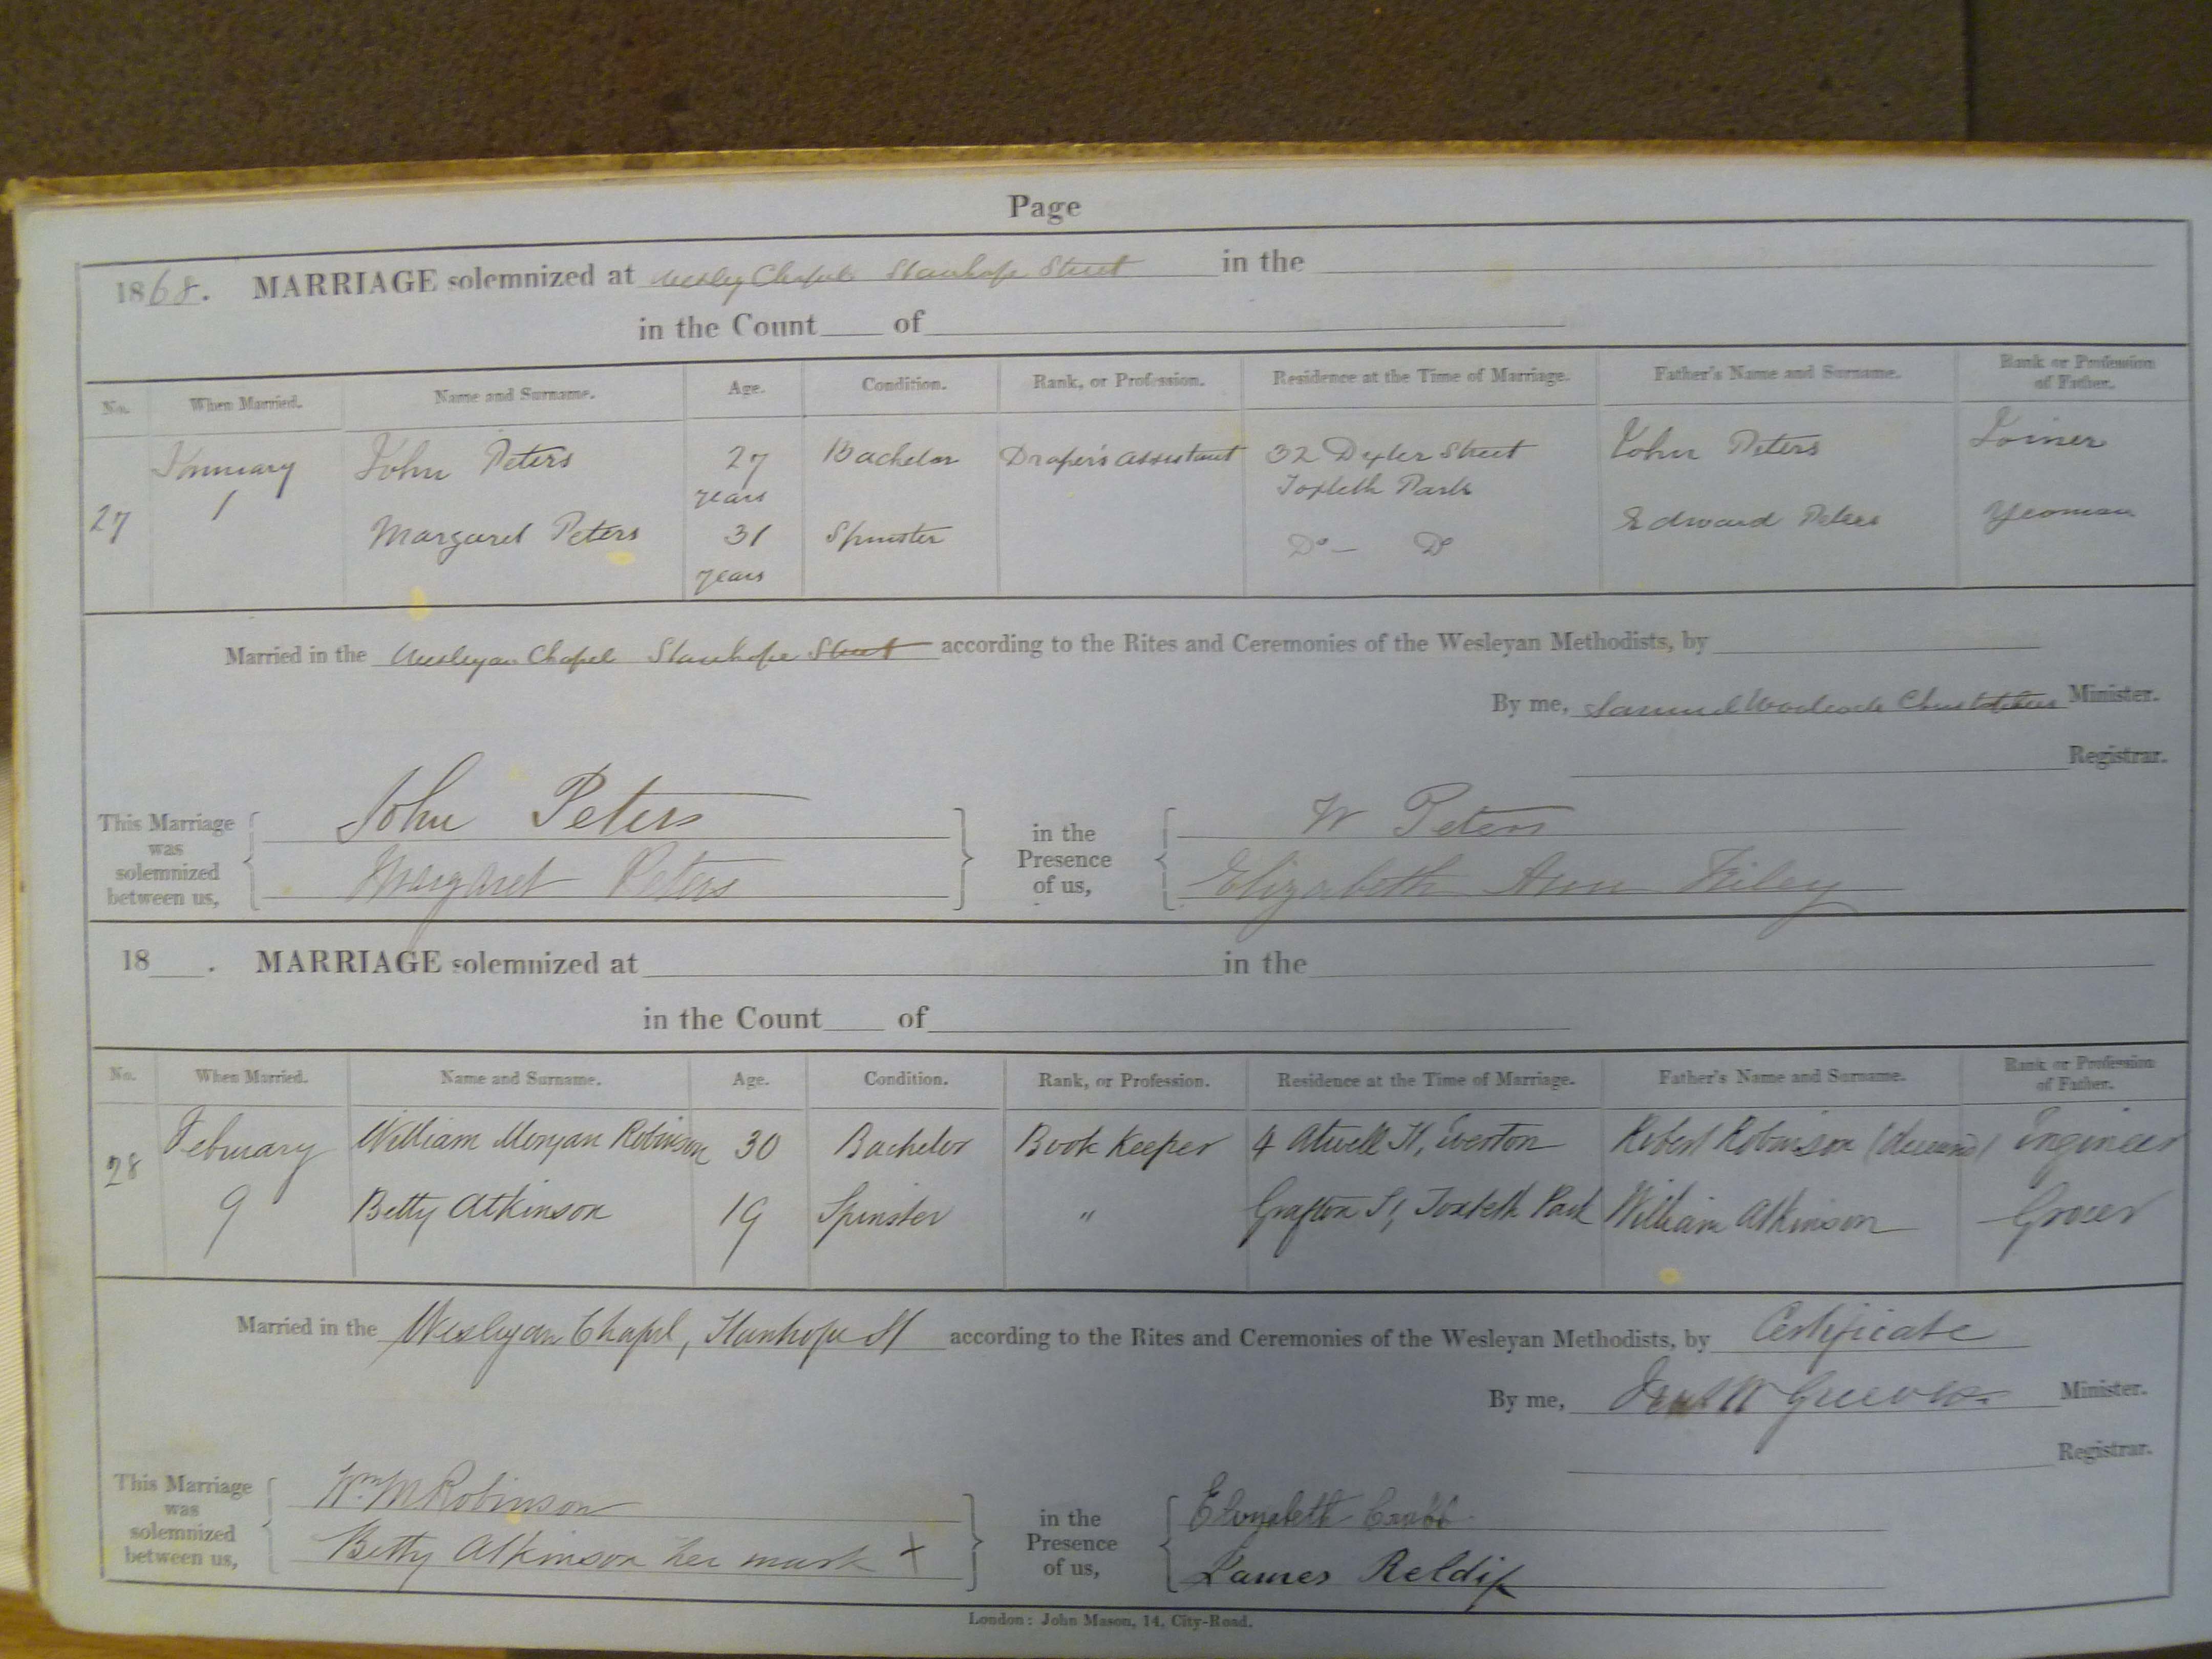 Page
1868. MARRIAGE solemnized at Wesley Chapel Stanhope Street in the
in the Count of
No. When Married. Name and Surname. Age. Condition. Rank, or Profession. Residence at the Time of Marriage. Father's Name and Surname. Rank or Profession of Father.
27 January 1 John Peters 27 years Bachelor Draper's assistant 32 Dexter Street Toxteth Park John Peters Joiner
Margaret Peters 31 years Spinster Do — Do Edward Peters Yeoman
Married in the Wesleyan Chapel Stanhope Street according to the Rites and Ceremonies of the Wesleyan Methodists, by
By me, Samuel Minister.
Registrar.
This Marriage was solemnized between us,
John Peters
Margaret Peters
in the Presence of us,
W Peters
Elizabeth Ann Riley
18 . MARRIAGE solemnized at in the
in the Count of
No. When Married. Name and Surname. Age. Condition. Rank, or Profession. Residence at the Time of Marriage. Father's Name and Surname. Rank or Profession of Father.
28 February 9 William Morgan Robinson 30 Bachelor Book Keeper 4 Atwell St, Everton Robert Robinson (deceased) Engineer
Betty Atkinson 19 Spinster " Grafton St, Toxteth Park William Atkinson Grocer
Married in the Wesleyan Chapel, Stanhope St according to the Rites and Ceremonies of the Wesleyan Methodists, by Certificate
By me, Minister.
Registrar.
This Marriage was solemnized between us,
Wm M Robinson
Betty Atkinson her mark +
in the Presence of us,
James
London: John Mason, 14, City-Road.